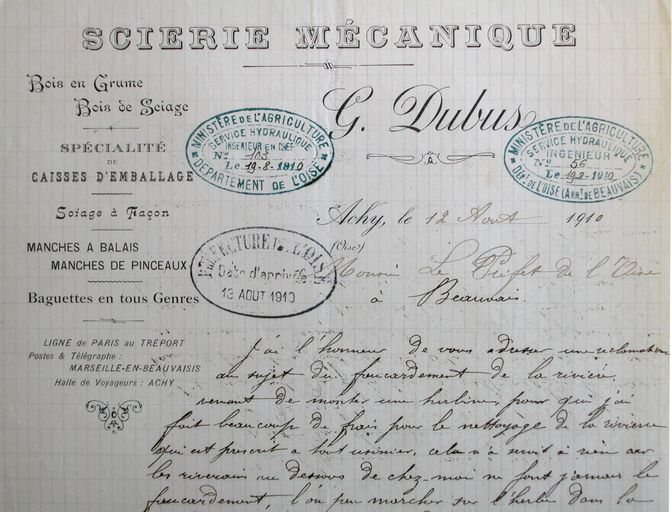 SCIERIE MÉCANIQUE
Bois en Grume
Bois de Sciage
SPÉCIALITÉ
DE
CAISSES D'EMBALLAGE
Sciage à Façon
MANCHES A BALAIS
MANCHES DE PINCEAUX
Baguettes en tous Genres
LIGNE de PARIS au TRÉPORT
Postes & Télégraphe :
MARSEILLE-EN-BEAUVAISIS
Halte de Voyageurs : ACHY
G. Dubus
à
MINISTÈRE DE L'AGRICULTURE
SERVICE HYDRAULIQUE
INGÉNIEUR EN CHEF
No 103
Le 19-8-1910
DÉPARTEMENT DE L'OISE
MINISTÈRE DE L'AGRICULTURE
SERVICE HYDRAULIQUE
INGÉNIEUR
No 56
Le 19-8-1910
DÉPt DE L'OISE (ARRt DE BEAUVAIS)
PRÉFECTURE DE L'OISE
Date d'arrivée
13 AOUT 1910
Achy, le 12 Aout 1910
(Oise)
Monsieur Le Préfet de l'Oise
à Beauvais
J'ai l'honneur de vous adresser une réclamation
au sujet du foucardement de la rivière
venant de monter une turbine, pour qui j'ai
fait beaucoup de frais pour le nettoyage de la rivière
qui est prescrit a tout usinier, cela n'a servit à rien car
les riverains au dessous de chez-moi ne font jamais le
foucardement, l'on peu marcher sur l'herbe dans la